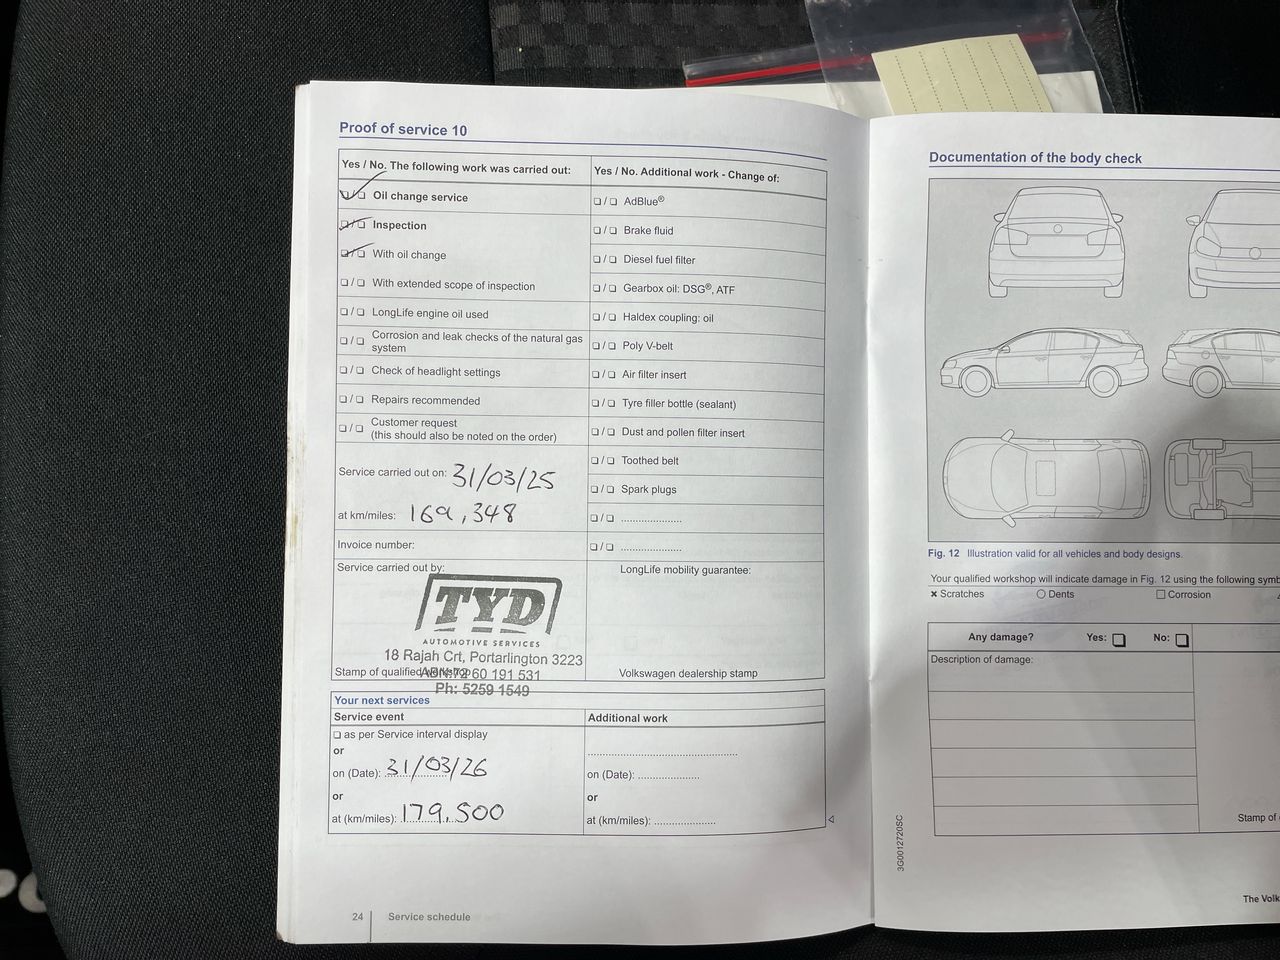 Proof of service 10
Yes / No. The following work was carried out:
❏ / ❏ Oil change service
❏ / ❏ Inspection
❏ / ❏ With oil change
❏ / ❏ With extended scope of inspection
❏ / ❏ LongLife engine oil used
❏ / ❏ Corrosion and leak checks of the natural gas
system
❏ / ❏ Check of headlight settings
❏ / ❏ Repairs recommended
❏ / ❏ Customer request
(this should also be noted on the order)
Service carried out on: 31/03/25
at km/miles: 169,348
Invoice number:
Service carried out by:
TYD
AUTOMOTIVE SERVICES
18 Rajah Crt, Portarlington 3223
Stamp of qualified
ABN:72 60 191 531
Ph: 5259 1549
Yes / No. Additional work - Change of:
❏ / ❏ AdBlue®
❏ / ❏ Brake fluid
❏ / ❏ Diesel fuel filter
❏ / ❏ Gearbox oil: DSG®, ATF
❏ / ❏ Haldex coupling: oil
❏ / ❏ Poly V-belt
❏ / ❏ Air filter insert
❏ / ❏ Tyre filler bottle (sealant)
❏ / ❏ Dust and pollen filter insert
❏ / ❏ Toothed belt
❏ / ❏ Spark plugs
❏ / ❏ .....................
❏ / ❏ .....................
LongLife mobility guarantee:
Volkswagen dealership stamp
Your next services
Service event
❏ as per Service interval display
or
on (Date): 31/03/26
or
at (km/miles): 179,500
Additional work
..................................................
on (Date): .....................
or
at (km/miles): .....................
24 Service schedule
Documentation of the body check
Fig. 12 Illustration valid for all vehicles and body designs.
Your qualified workshop will indicate damage in Fig. 12 using the following
✖ Scratches ○ Dents ❏ Corrosion
Any damage? Yes: ❏ No: ❏
Description of damage:
Stamp of
3G0012720SC
The